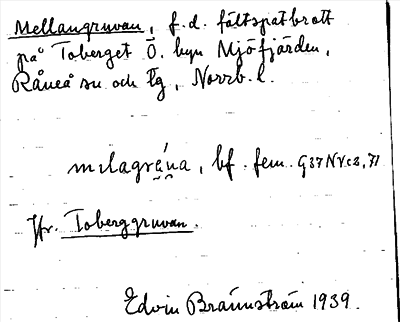 Mellangruvan, f. d. fältspatbrott
på Toberget Ö. byn Mjöfjärden,
Råneå sn och tg, Norrb. l.
mɩlagrá̰na, bf. fem. G37 N
Jfr. Toberggruvan.
Edvin Brännström 1939.